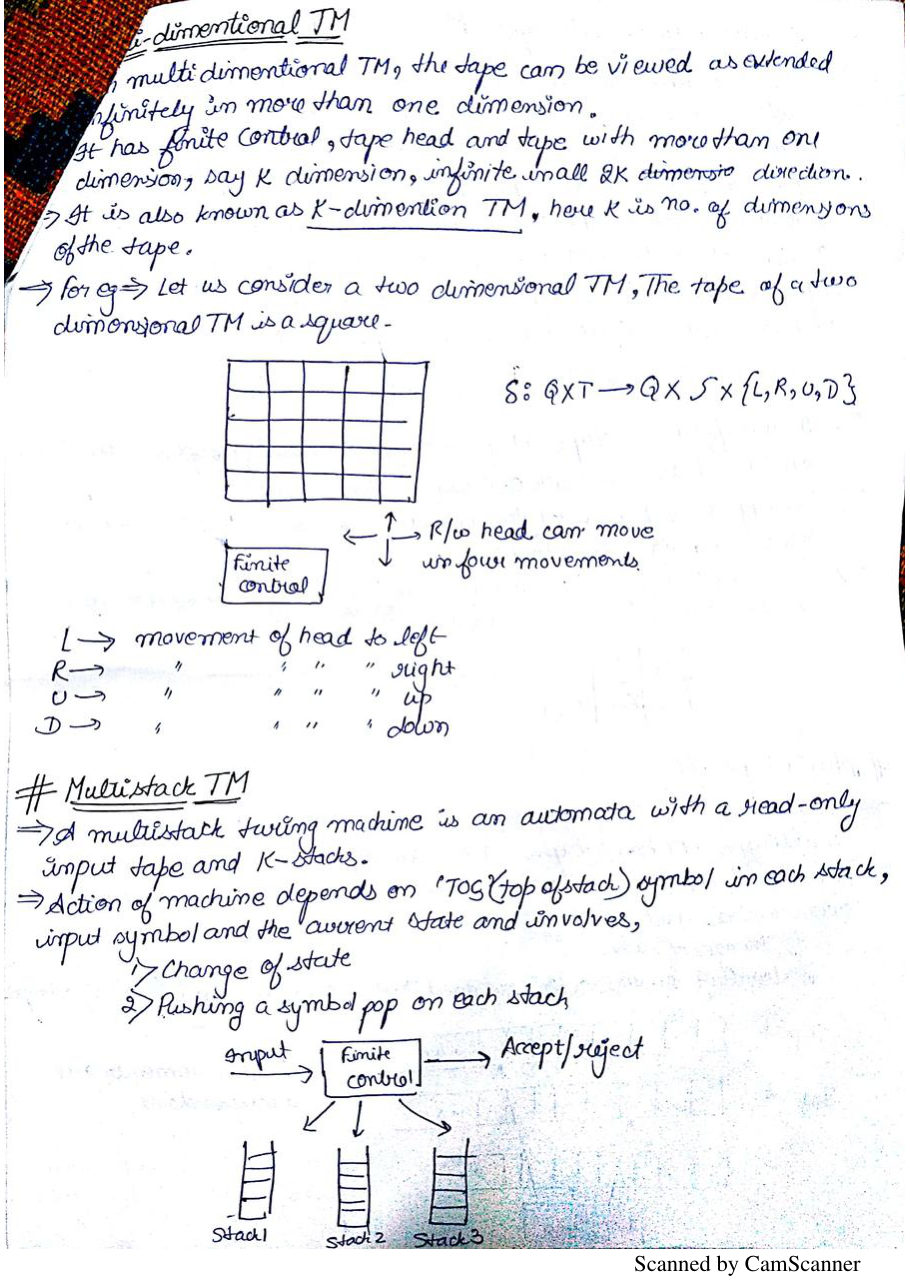 i-dimentional TM
multi dimentional TM, the tape can be viewed as extended
nfinitely in more than one dimension.
It has finite control, tape head and tape with more than one
dimension, say K dimension, infinite in all 2K direction.
⇒ It is also known as K-dimention TM, here K is no. of dimensions
of the tape.
→ for eg ⇒ Let us consider a two dimensional TM, The tape of a two
dimensional TM is a square-
δ: Q×T → Q × × {L, R, U, D}
← ↑ → ↓ R/w head can move
in four movements
Finite
control
L → movement of head to left
R → " " " " right
U → " " " " up
D → " " " " down
# Multistack TM
⇒ A multistack turing machine is an automata with a read-only
input tape and K-stacks.
⇒ Action of machine depends on 'TOS' (top of stack) symbol in each stack,
input symbol and the current state and involves,
1> Change of state
2> Pushing a symbol pop on each stack
Input
Finite
control
Accept/reject
Stack1
Stack 2
Stack 3
Scanned by CamScanner